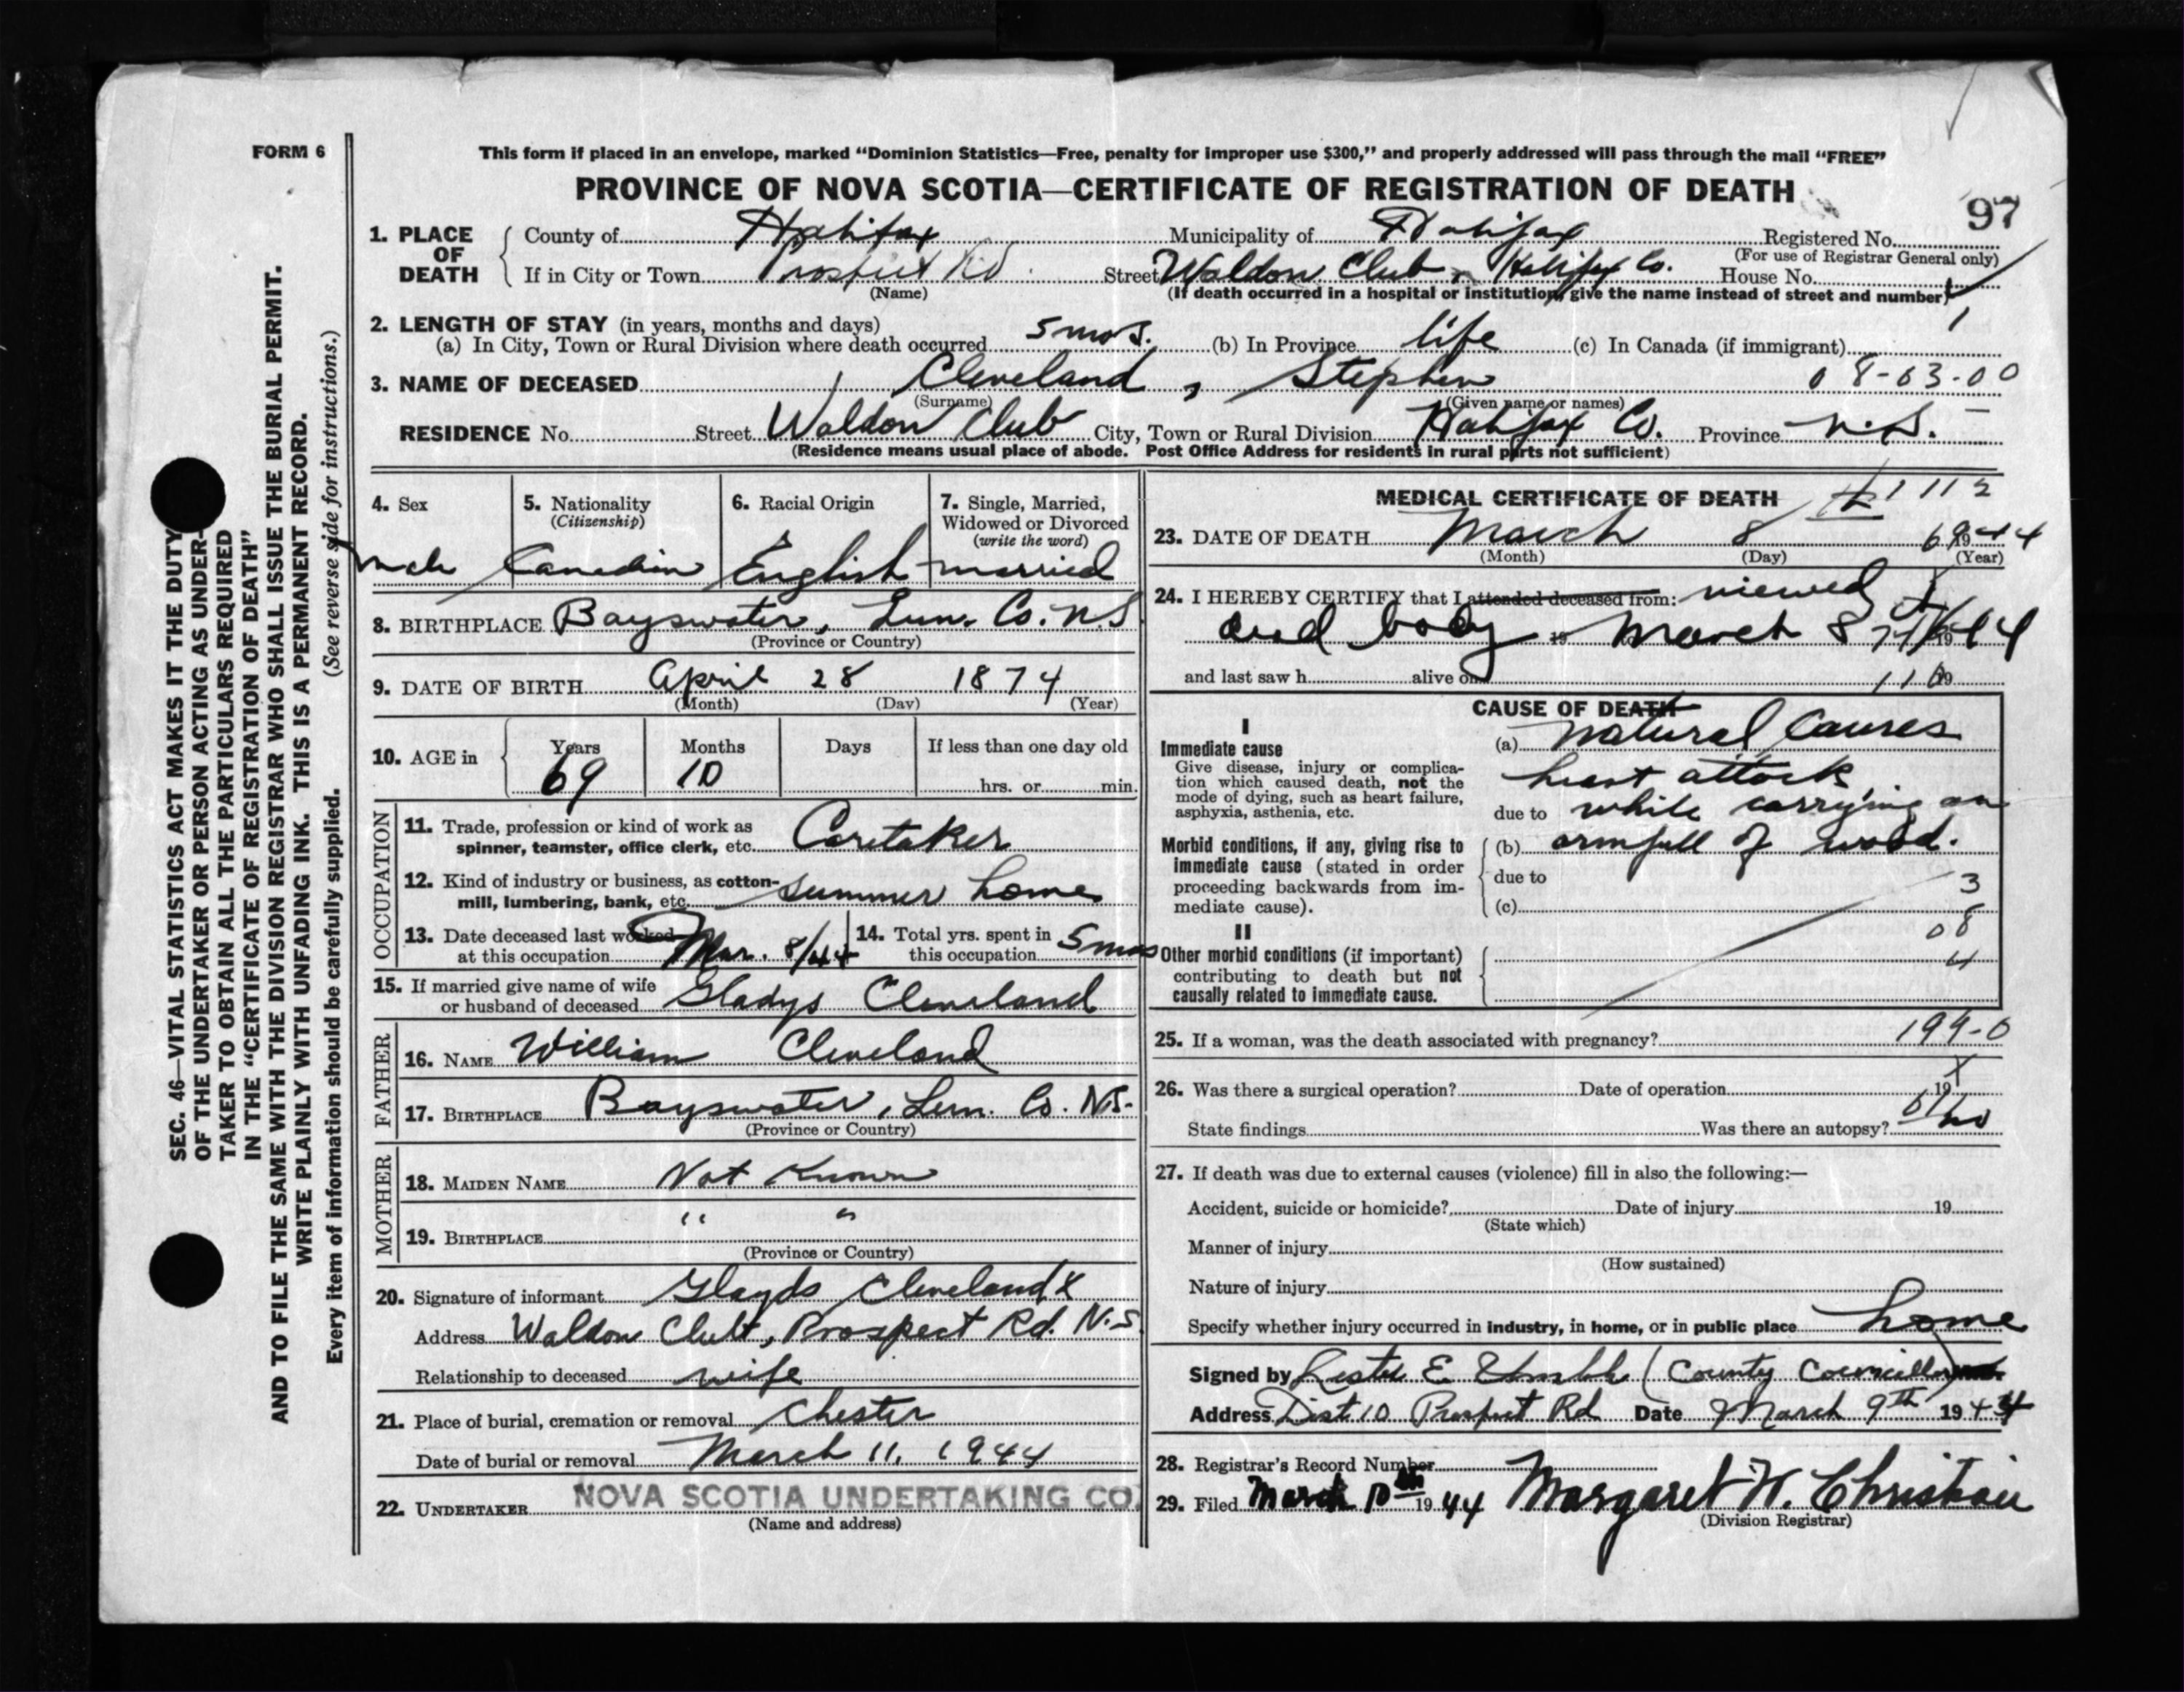 FORM 6
This form if placed in an envelope, marked “Dominion Statistics—Free, penalty for improper use $300,” and properly addressed will pass through the mail “FREE”
PROVINCE OF NOVA SCOTIA—CERTIFICATE OF REGISTRATION OF DEATH
97
1. PLACE OF DEATH
County of Halifax Municipality of Halifax Registered No.
(For use of Registrar General only)
If in City or Town Prospect Rd. Street Waldon Club, Halifax Co. House No.
(Name) (If death occurred in a hospital or institution, give the name instead of street and number)
2. LENGTH OF STAY (in years, months and days)
(a) In City, Town or Rural Division where death occurred 5 mos. (b) In Province life (c) In Canada (if immigrant)
3. NAME OF DECEASED Cleveland, Stephen 08-03-00
(Surname) (Given name or names)
RESIDENCE No. Street Waldon Club City, Town or Rural Division Halifax Co. Province N.S.
(Residence means usual place of abode. Post Office Address for residents in rural parts not sufficient)
4. Sex
male
5. Nationality
(Citizenship)
Canadian
6. Racial Origin
English
7. Single, Married,
Widowed or Divorced
(write the word)
married
8. BIRTHPLACE Bayswater, Lun. Co. N.S
(Province or Country)
9. DATE OF BIRTH April 28 1874
(Month) (Day) (Year)
10. AGE in Years Months Days If less than one day old
69 10 hrs. or min.
OCCUPATION
11. Trade, profession or kind of work as
spinner, teamster, office clerk, etc. Caretaker
12. Kind of industry or business, as cotton-
mill, lumbering, bank, etc. summer home
13. Date deceased last worked
at this occupation Mar. 8/44
14. Total yrs. spent in
this occupation 5 mos
15. If married give name of wife
or husband of deceased Gladys Cleveland
FATHER
16. NAME William Cleveland
17. BIRTHPLACE Bayswater, Lun. Co. N.S.
(Province or Country)
MOTHER
18. MAIDEN NAME Not Known
19. BIRTHPLACE " "
(Province or Country)
20. Signature of informant Glayds Cleveland X
Address Waldon Club, Prospect Rd. N.S
Relationship to deceased wife
21. Place of burial, cremation or removal Chester
Date of burial or removal March 11, 1944
22. UNDERTAKER NOVA SCOTIA UNDERTAKING CO
(Name and address)
MEDICAL CERTIFICATE OF DEATH
1112
23. DATE OF DEATH March 8 1944
(Month) (Day) (Year)
24. I HEREBY CERTIFY that I attended deceased from: viewed
dead body 19 March 8th 1944
and last saw h alive on 19
CAUSE OF DEATH
I
Immediate cause
Give disease, injury or complica-
tion which caused death, not the
mode of dying, such as heart failure,
asphyxia, asthenia, etc.
(a) natural causes
heart attack
due to while carrying an
Morbid conditions, if any, giving rise to
immediate cause (stated in order
proceeding backwards from im-
mediate cause).
(b) armfull of wood.
due to
3
(c)
08
II
Other morbid conditions (if important)
contributing to death but not
causally related to immediate cause.
4
25. If a woman, was the death associated with pregnancy? 199-0
26. Was there a surgical operation? Date of operation 19
State findings Was there an autopsy? no
27. If death was due to external causes (violence) fill in also the following:—
Accident, suicide or homicide? Date of injury 19
(State which)
Manner of injury
(How sustained)
Nature of injury
Specify whether injury occurred in industry, in home, or in public place home
Signed by Lester E. (County Councillor)
Address Dist 10 Prospect Rd Date March 9th 1944
28. Registrar's Record Number
29. Filed March 10th 1944 Margaret W. Christian
(Division Registrar)
SEC. 46—VITAL STATISTICS ACT MAKES IT THE DUTY
OF THE UNDERTAKER OR PERSON ACTING AS UNDER-
TAKER TO OBTAIN ALL THE PARTICULARS REQUIRED
IN THE “CERTIFICATE OF REGISTRATION OF DEATH”
AND TO FILE THE SAME WITH THE DIVISION REGISTRAR WHO SHALL ISSUE THE BURIAL PERMIT.
WRITE PLAINLY WITH UNFADING INK. THIS IS A PERMANENT RECORD.
Every item of information should be carefully supplied. (See reverse side for instructions.)